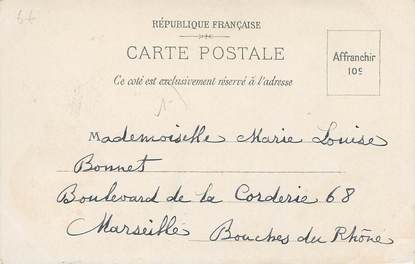 RÉPUBLIQUE FRANÇAISE
CARTE POSTALE
Affranchir
10c
Ce coté est exclusivement réservé à l'adresse
Mademoiselle Marie Louise
Bonnet
Boulevard de la Corderie 68
Marseille Bouches du Rhône